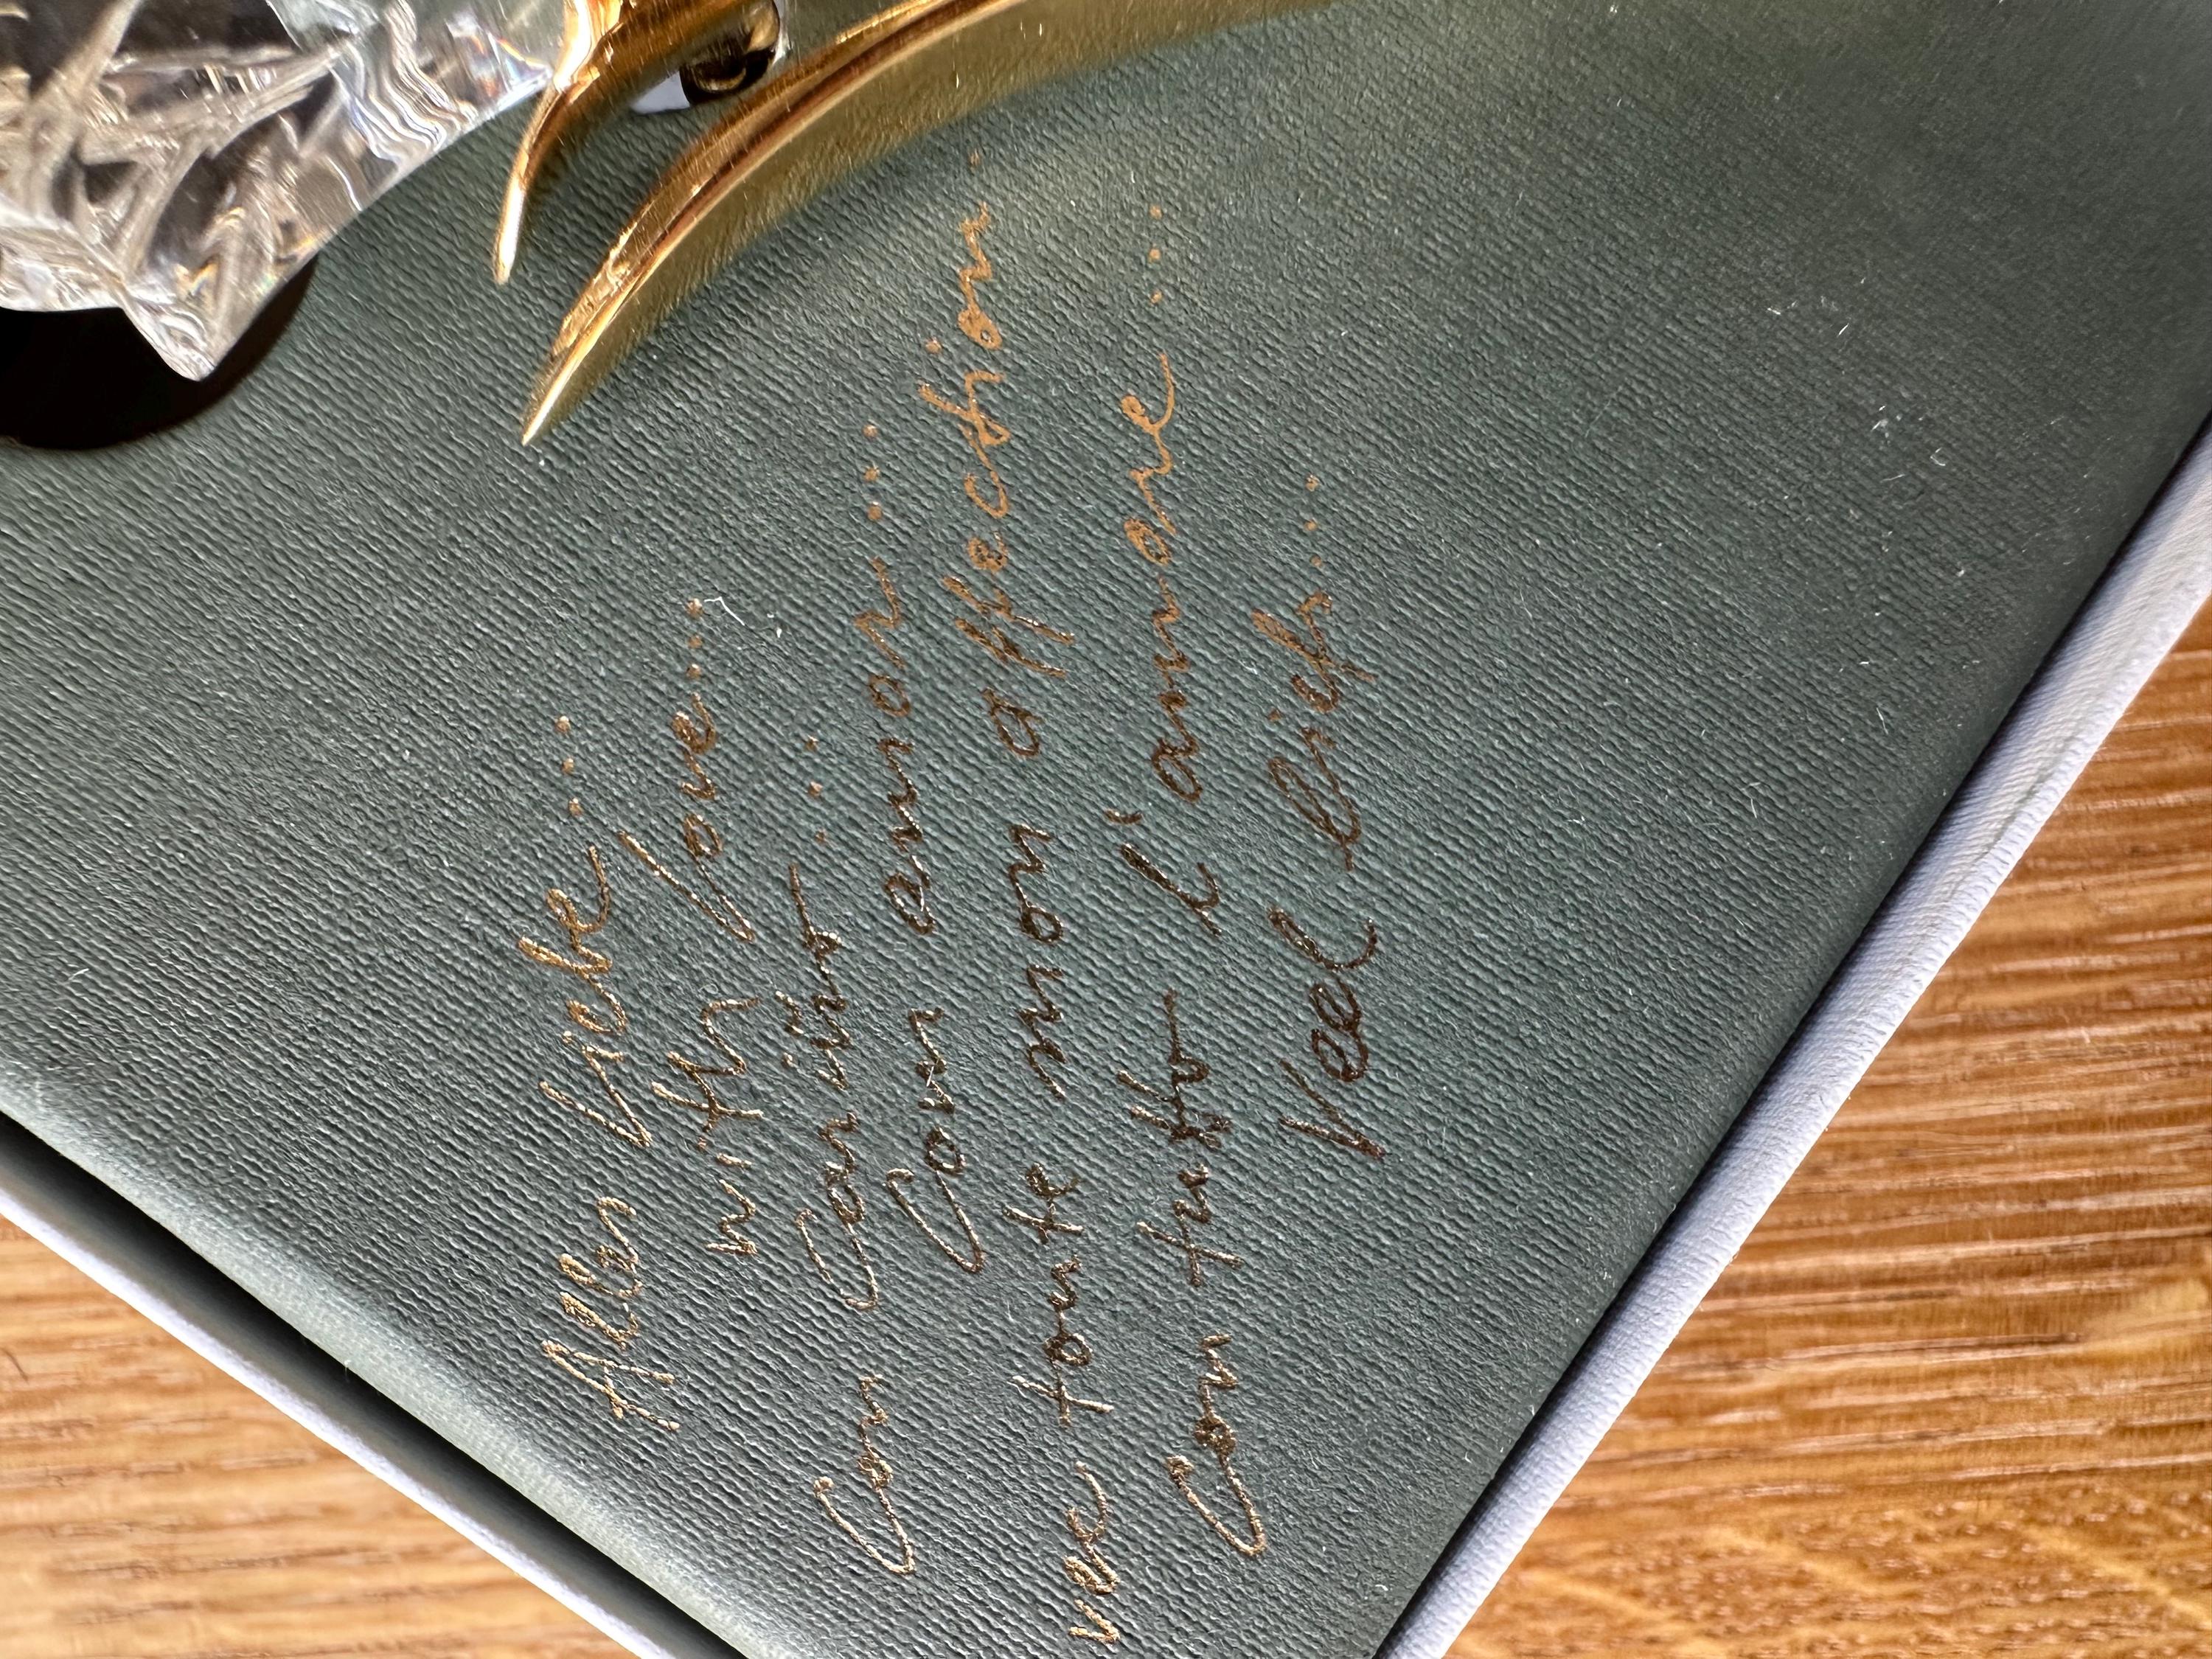 Alles liebe...
with love...
Con cariño...
Com amor...
vec toute mon affection..
Con tutto l'amore...
Veel liefs...